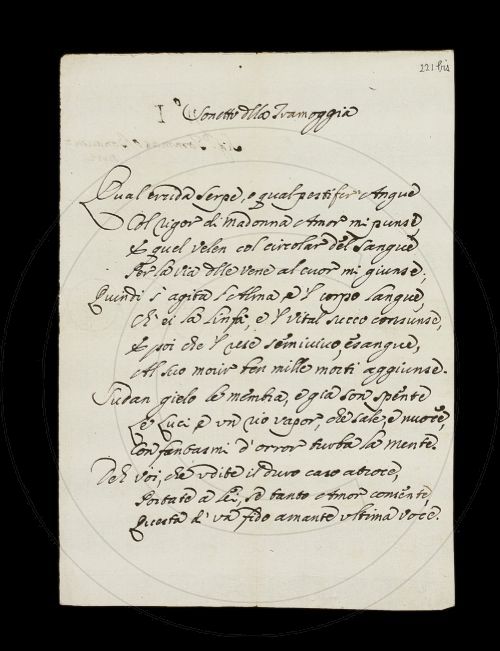 221 bis
I° Sonetto della Tramoggia
Qual errida Serpe, o qual pestifer Angue
Col vigor di Madonna Amor mi punse
E quel velen col circolar del Sangue
Per la via delle vene al cuor mi giunse;
Quindi s'agita l'Alma e 'l corpo langue,
Ch' ei la linfa, e 'l vital succo consunse,
E poi che 'l rese semivivo, esangue,
Al suo morir ben mille morti aggiunse.
Sudan gielo le membra, e già son spente
Le luci e un rio vapor, che sale, e nuoce,
Con fantasmi d'orror turba la mente.
Deh voi, che udite il duro caso atroce,
Portate a lei, se tanto Amor consente,
Questa d' un fido amante ultima voce.